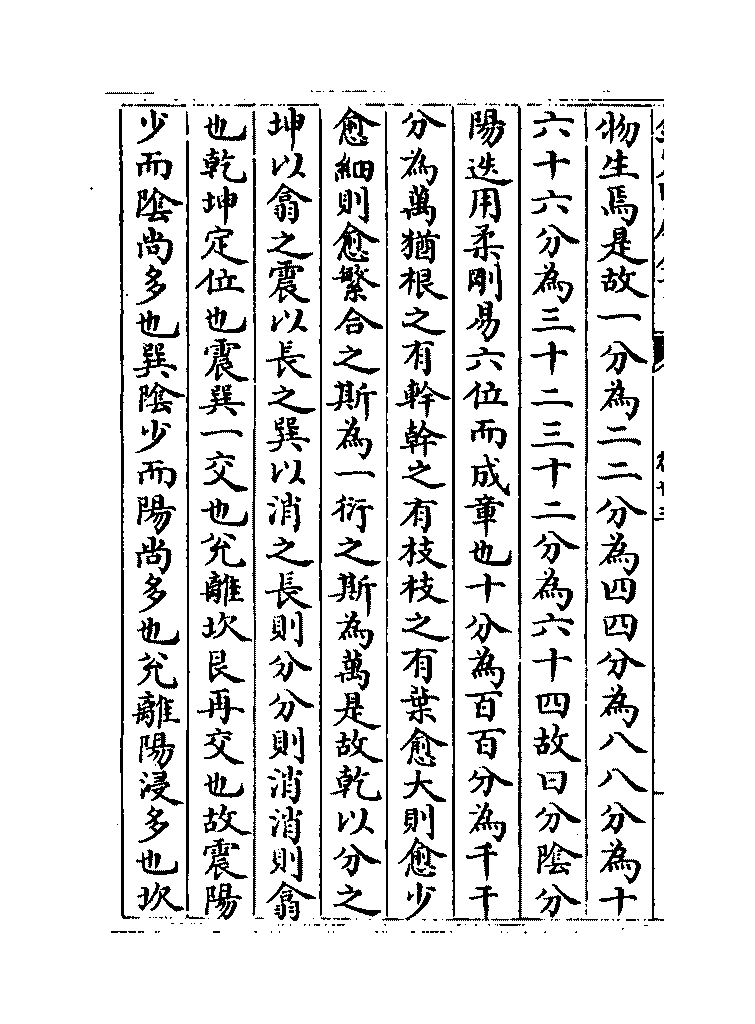 物生焉是故一分為二二分為四四分為八八分為十
六十六分為三十二三十二分為六十四故曰分陰分
陽迭用柔剛易六位而成章也十分為百百分為千千
分為萬猶根之有幹幹之有枝枝之有葉愈大則愈少
愈細則愈繁合之斯為一衍之斯為萬是故乾以分之
坤以翕之震以長之巽以消之長則分分則消消則翕
也乾坤定位也震巽一交也兊離坎艮再交也故震陽
少而陰尚多也巽陰少而陽尚多也兊離陽浸多也坎